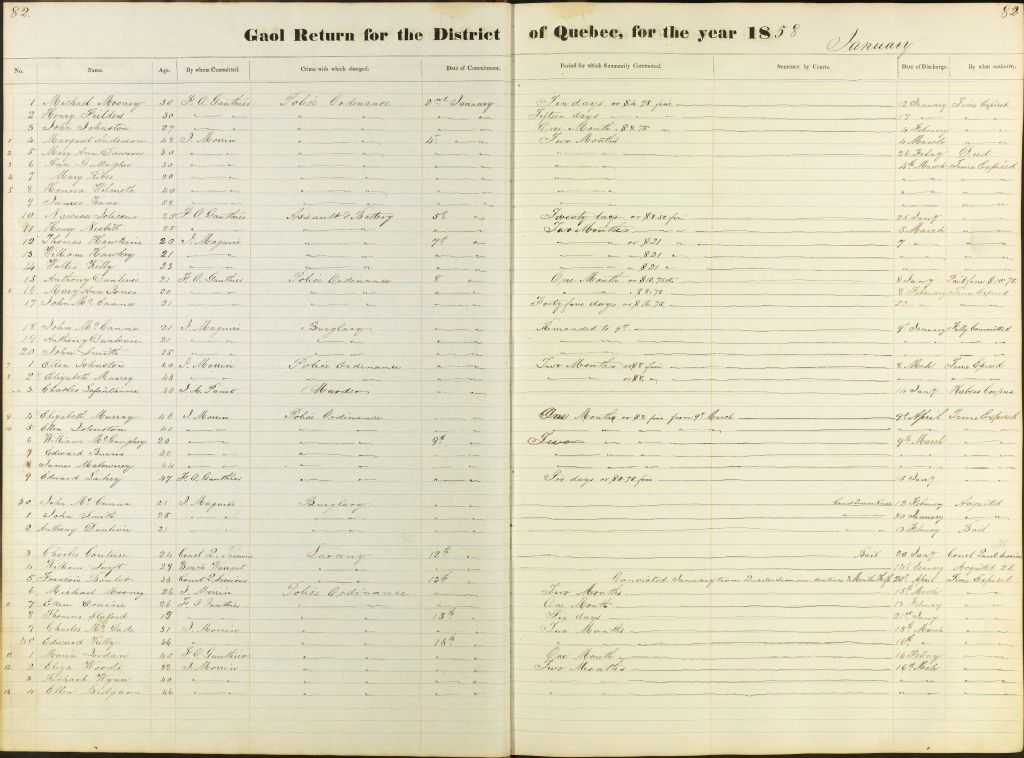 82
82
Gaol Return for the District of Quebec, for the year 1858
January
No. Name. Age. By whom Committed. Crime with which charged. Date of Commitment. Period for which Summarily Committed. Sentence by Courts. Date of Discharge. By what authority.
1 Michael Mooney 30 F. O. Gauthier Police Ordinance 2nd January Ten days or $4.75 fine 12 January Time Expired
2 Henry Fielders 30 " " " " Fifteen days 17 " "
3 John Johnston 27 " " " " One Month $8.75 4 February "
1 4 Margaret Anderson 48 J. Morrin " " 4th " Two Months 4 March "
2 5 Mary Ann 30 " " " " " " 26 Febry Died
3 6 Ann Gallagher 30 " " " " " " 4th March Time Expired
4 7 Mary 29 " " " " " "
5 8 Honora Wilmoth 40 " " " " " "
9 James Kane 58 " " " " " "
10 Narcisse 25 F. O. Gauthier Assault & Battery 5th " Twenty days or $8.50 fine 25 Jany "
11 Henry Nesbitt 25 " " " " Two Months 5 March "
12 Thomas Hawkins 20 J. Maguire " " 7th " " " or $21 7 " "
13 William Hawkey 21 " " " " " " $21 " "
14 Walter Kelly 23 " " " " " " $21 " "
15 Anthony Dunlevie 21 F. O. Gauthier Police Ordinance 8 " One Month or $10.75 8 Jany Paid fine $10.75
6 16 Mary Ann Jones 20 " " " " " " $8.75 8 February Time Expired
17 John McCanna 21 " " " " Forty five days or $16.75 22 "
18 John McCanna 21 J. Maguire Burglary " " Remanded to 9th 9th January Fully Committed
19 Anthony Dunlevie 21 " " " " " "
20 John Smith 25 " " " " " "
7 1 Ellen Johnston 40 J. Morrin Police Ordinance " " Two Months or $8 fine 8 Mch Time Expired
8 2 Elizabeth Murray 44 " " " " " " or $8 " "
3 Charles Lafontaine 30 J. A. Panet Murder " " 14 Jany Habeas Corpus
9 4 Elizabeth Murray 46 J. Morrin Police Ordinance " " One Month or $2 fine from 9th March 9th April Time Expired
10 5 Ellen Johnston 40 " " " "
6 William McCaughey 20 " " 9th " Two " 9th March "
7 Edward Burns 30 " " " " " "
8 James Malowney 44 " " " " " "
9 Edward Lahey 47 F. O. Gauthier " " " Six days or $2.75 fine 15 Jany "
30 John McCanna 21 J. Maguire Burglary " " 12 February Acquitted
1 John Smith 25 " " " " 30 January " "
2 Anthony Dunlevie 21 " " " " 13 February Bail
3 Charles Couture 24 Court Q. Sessions Larceny 12th " Bail 20 Jany Court Quart Sessions
4 William Swift 29 Bench Warrant " " " 14th January Acquitted
5 Francois 33 Court Q. Sessions " 13th " Convicted January term Quarter Sessions sentence 3 Months 20th April Time Expired
6 Michael Mooney 26 J. Morrin Police Ordinance " " Two Months 13th March "
11 7 Ellen 26 F. O. Gauthier " " " One Month 13 Febury "
8 Thomas Stafford 15 " " 15th " Six days 21st Jany "
9 Charles McDade 51 J. Morrin " " " Two Months 15th March "
40 Edward Kelly 36 " " 16th " " " 16th "
12 1 Maria Jordan 40 F. O. Gauthier " " " One Month 16 Febry "
13 2 Eliza Woods 32 J. Morrin " " " Two Months 16th Mch "
3 Richard Wynn 40 " " " " " "
14 4 Ellen 46 " " " " " "